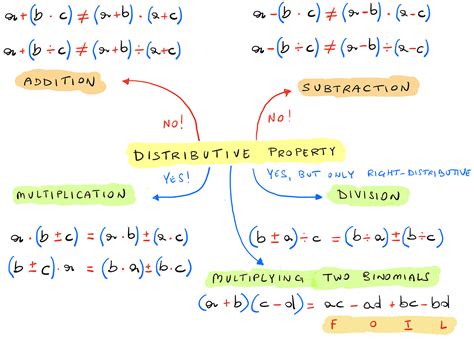 a+(b·c) ≠ (a+b)·(a+c)
a+(b÷c) ≠ (a+b)÷(a+c)
ADDITION
a-(b·c) ≠ (a-b)·(a-c)
a-(b÷c) ≠ (a-b)÷(a-c)
SUBTRACTION
NO!
NO!
DISTRIBUTIVE PROPERTY
YES!
YES, BUT ONLY RIGHT-DISTRIBUTIVE
MULTIPLICATION
DIVISION
a·(b±c) = (a·b)±(a·c)
(b±c)·a = (b·a)±(b·c)
(b±a)÷c = (b÷a)±(b÷c)
MULTIPLYING TWO BINOMIALS
(a+b)(c-d) = ac - ad + bc - bd
F O I L